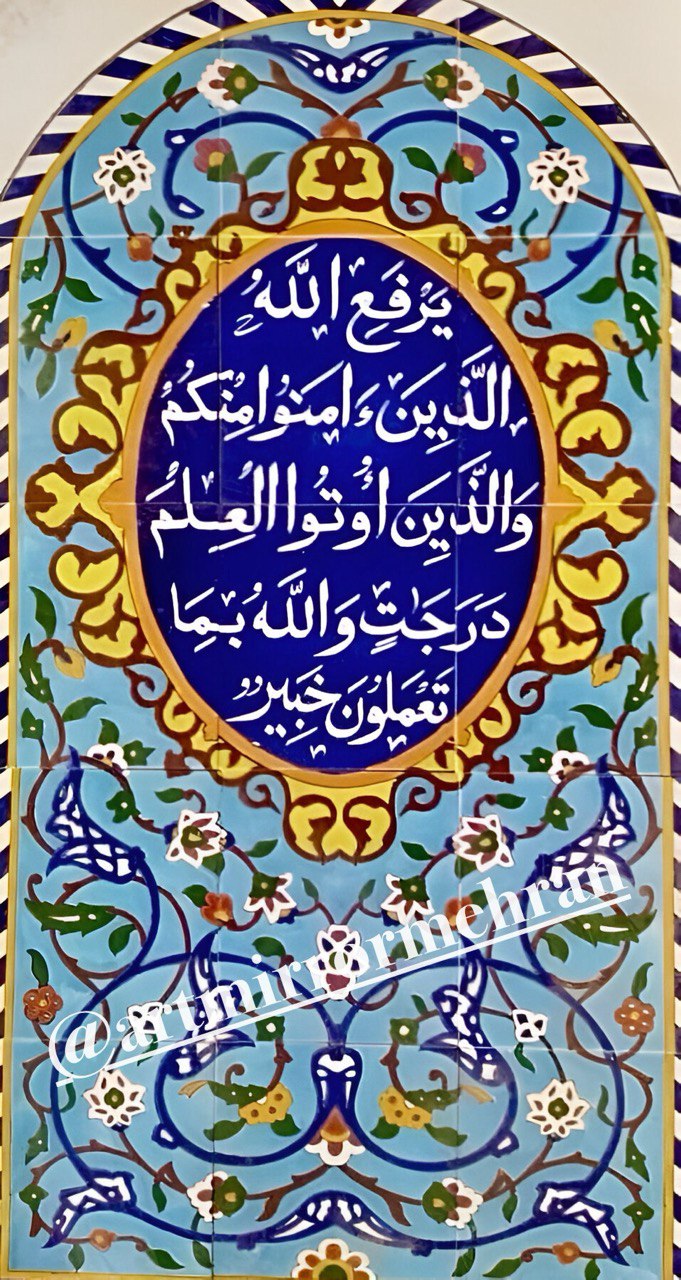 يَرْفَعِ اللَّهُ
الَّذِينَ ءَامَنُوا مِنْكُمْ
وَالَّذِينَ أُوتُوا الْعِلْمَ
دَرَجَٰتٍ وَاللَّهُ بِمَا
تَعْمَلُونَ خَبِيرٌ
@artmirrormehran